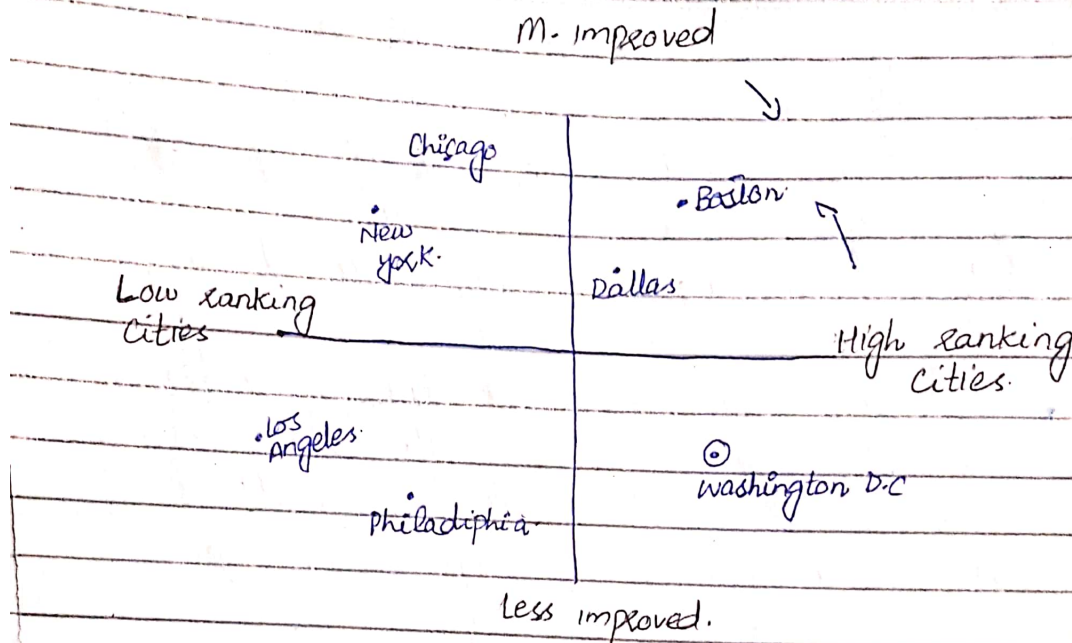 M. improved
Chicago
Boston
New
york.
Dallas
Low ranking
Cities
High ranking
Cities.
Los
Angeles.
Washington D.C
Philadiphia
Less improved.